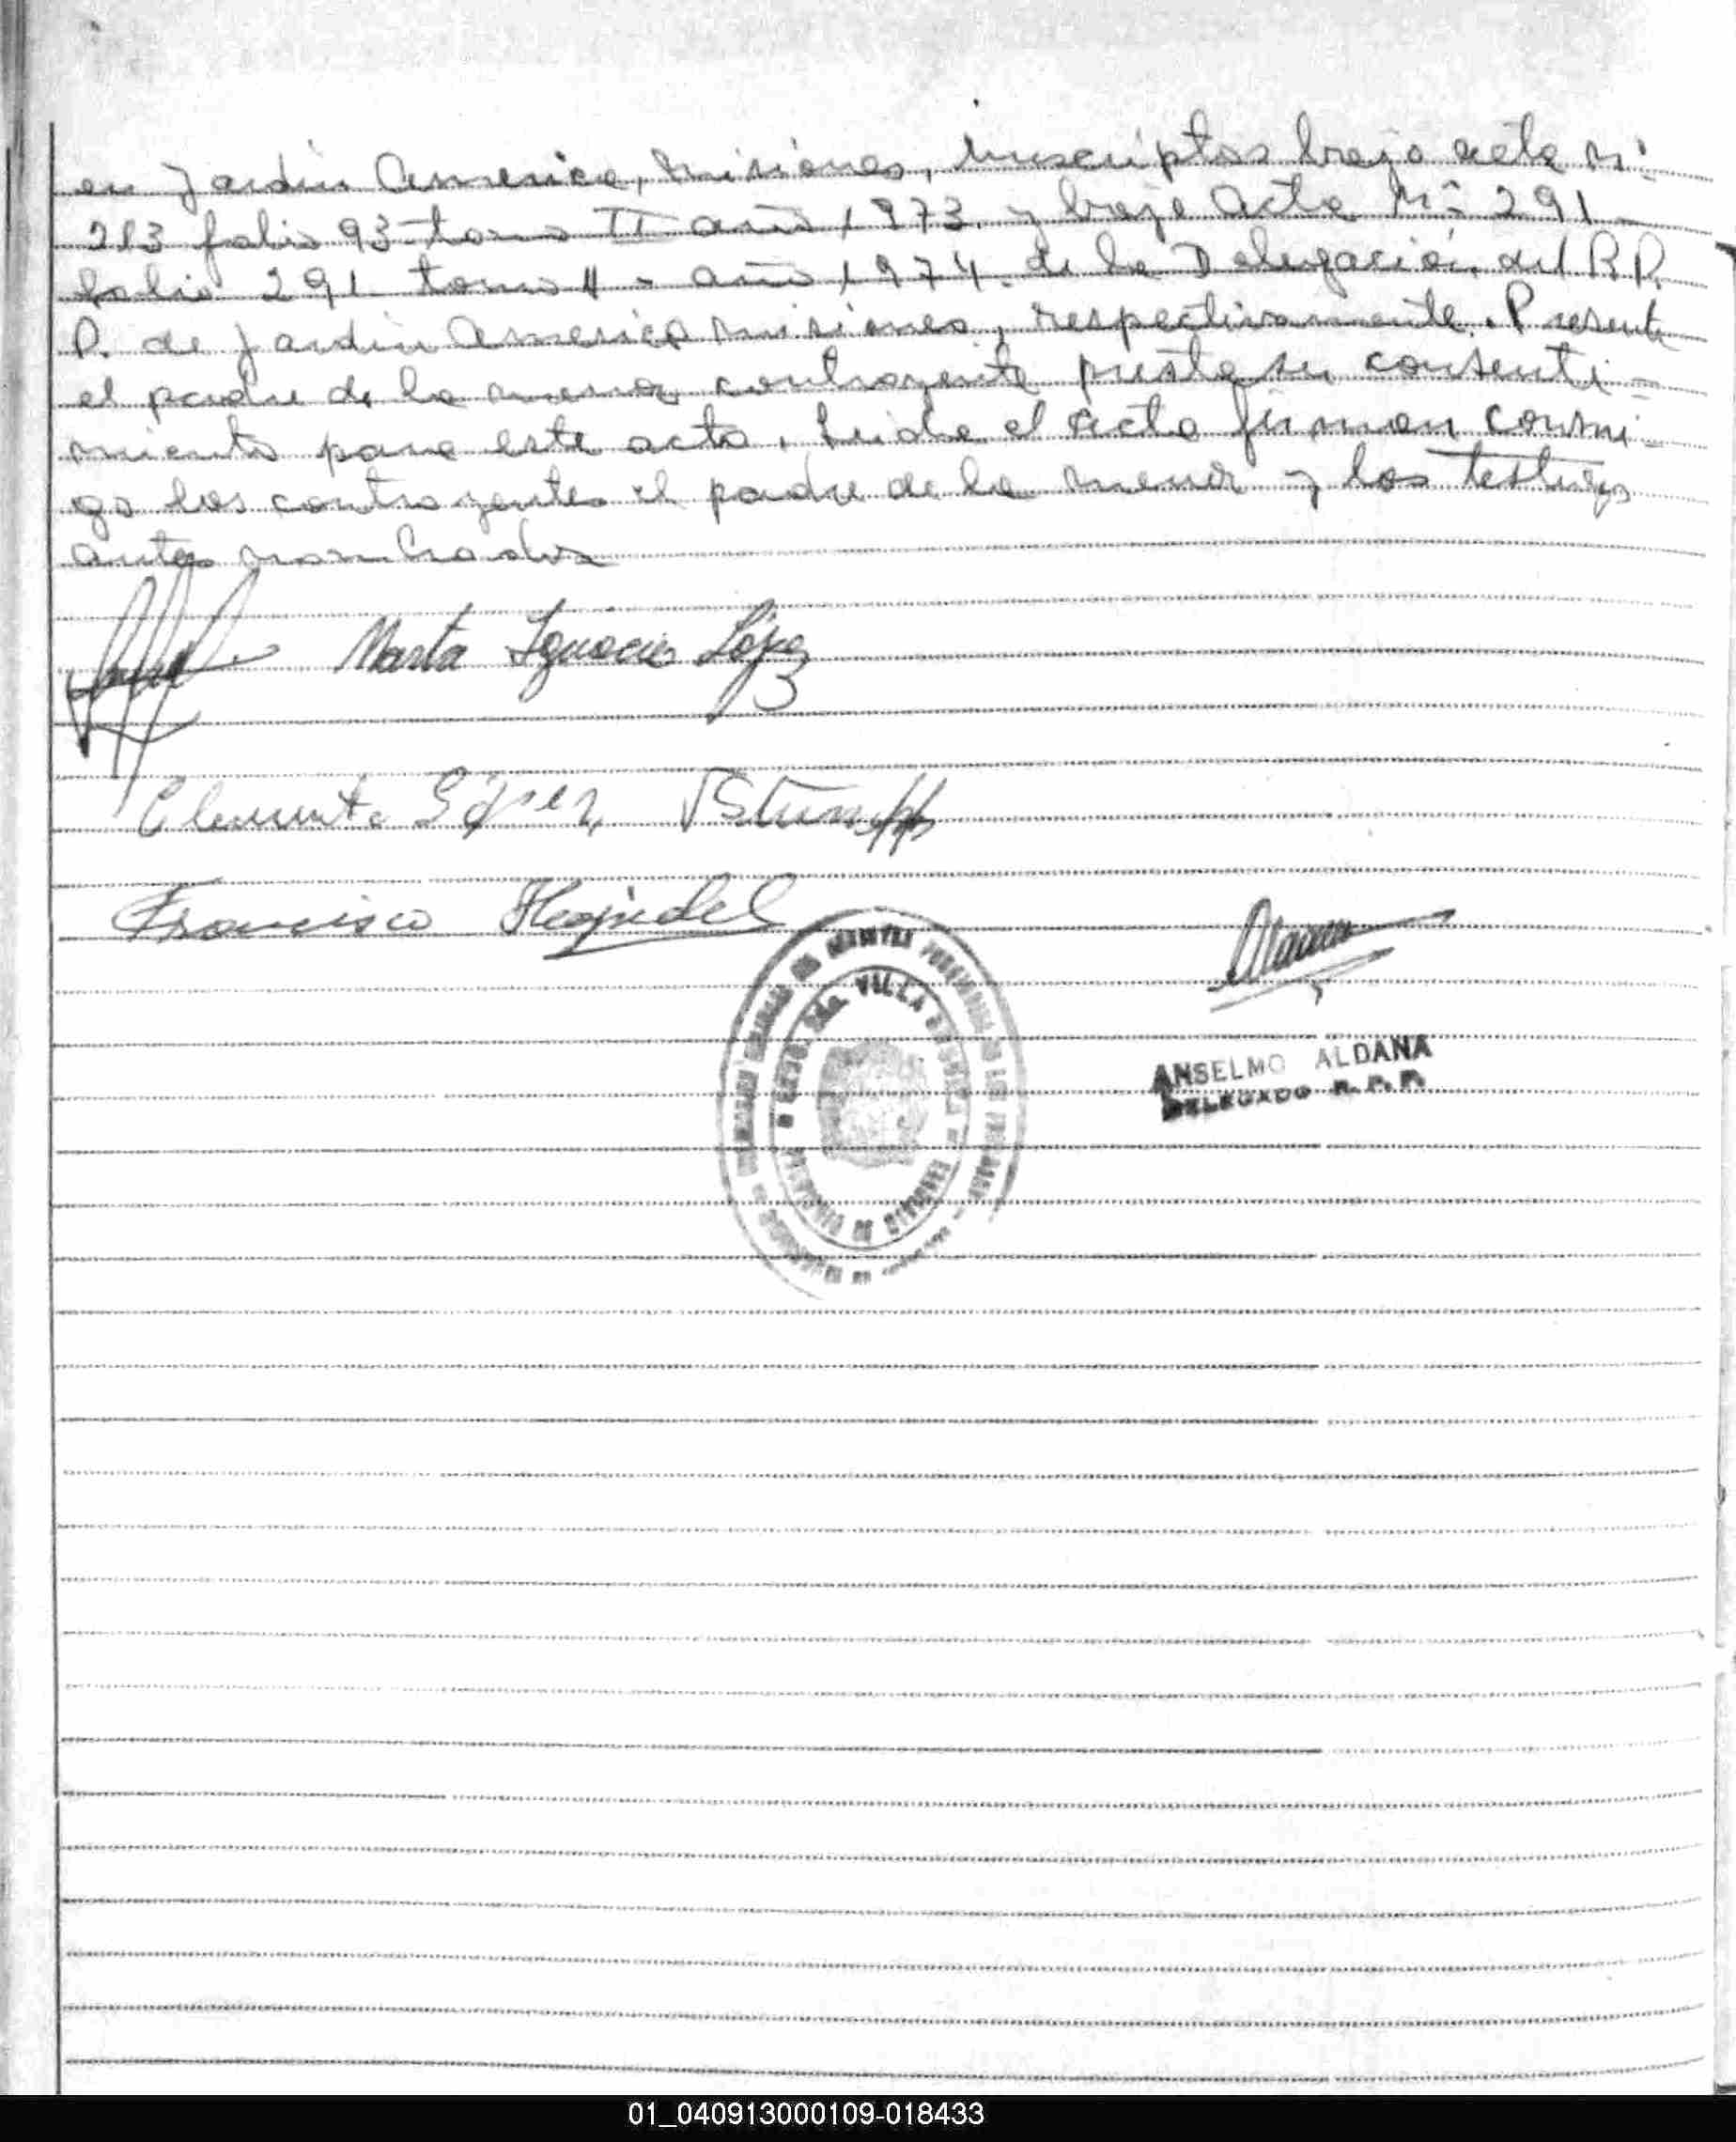 en Jardin America, Misiones, inscriptos bajo acta Nº
213 folio 93 tomo II año 1973. y bajo Acta Nº 291
folio 291 tomo II - año 1974. de la Delegación del R.P.
P. de Jardin America Misiones, respectivamente. Presente
el padre de la menor contrayente presta su consenti-
miento para este acto. Leida el acta firman conmi-
go los contrayentes el padre de la menor y los testigos
antes nombrados
Marta Ignacia López
Clemente López Stumpfs
Francisco Hejndel
VILLA
ANSELMO ALDANA
DELEGADO R. P. P.
01_040913000109-018433